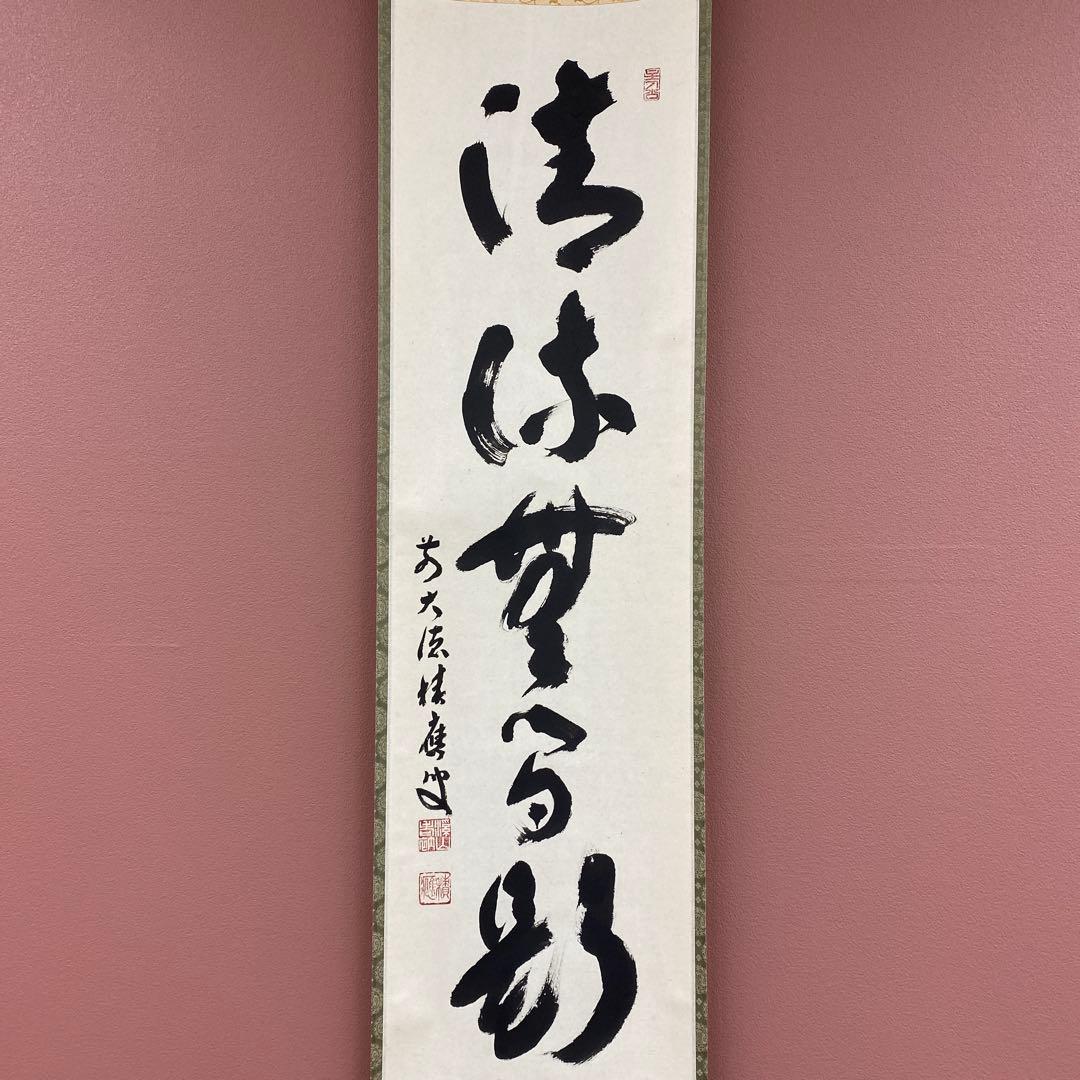 清流無間斷
前大徳積應叟